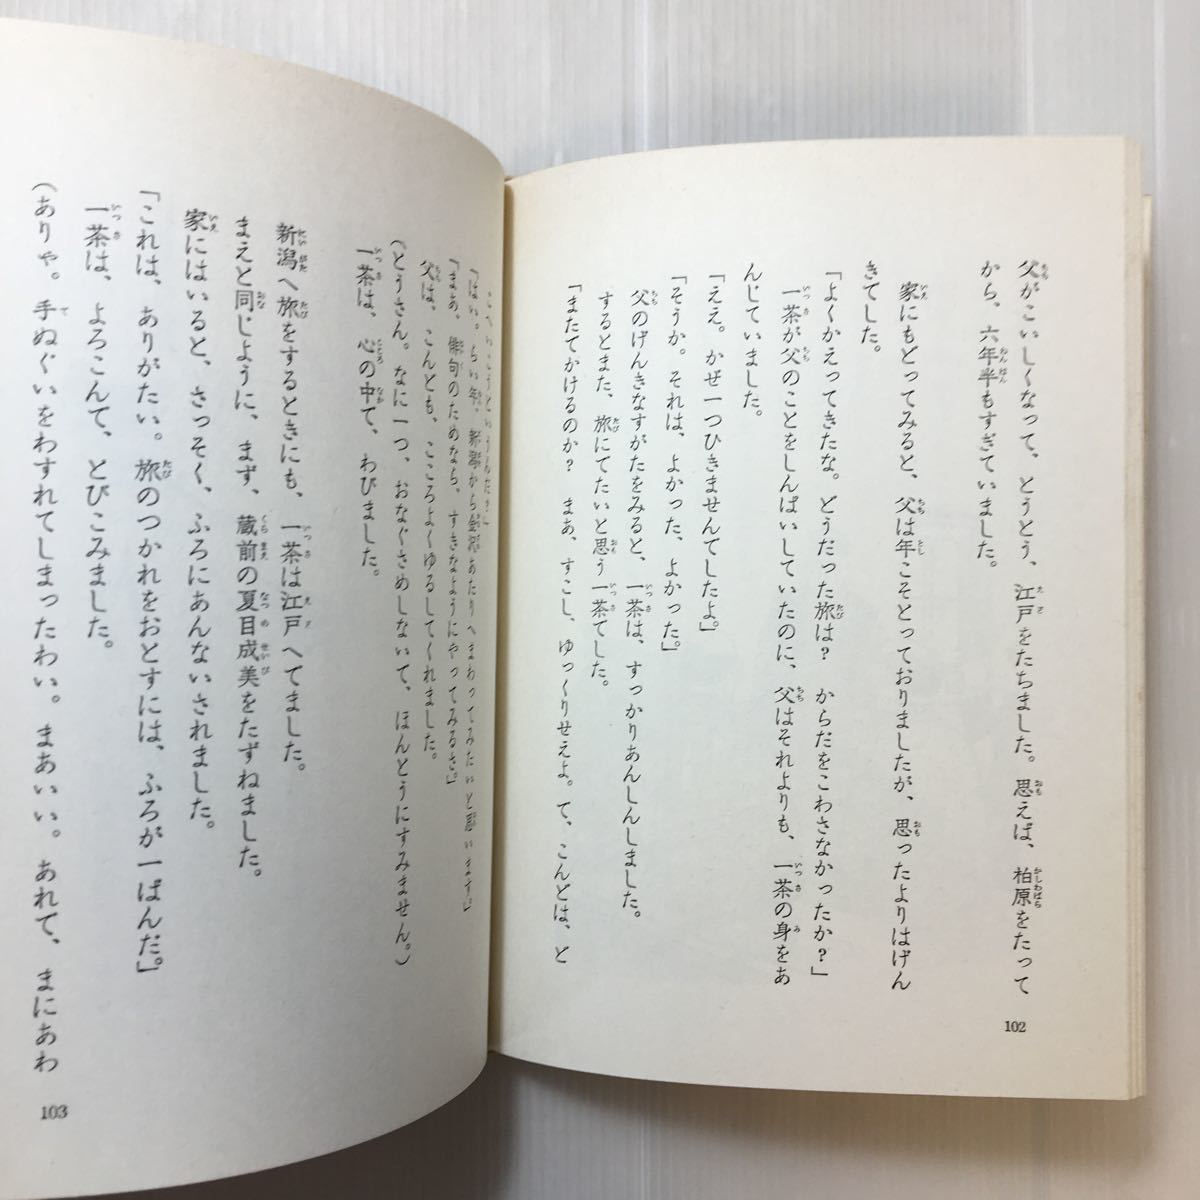 父がこいしくなって、とうとう、江戸をたちました。思えば、柏原をたって
から、六年半もすぎていました。
家にもどってみると、父は年こそとっておりましたが、思ったよりはげん
きでした。
「よくかえってきたな。どうだった旅は？　からだをこわさなかったか？」
一茶が父のことをしんぱいしていたのに、父はそれよりも、一茶の身をあ
んじていました。
「ええ。かぜ一つひきませんでしたよ。」
「そうか。それは、よかった、よかった。」
父のげんきなすがたをみると、一茶は、すっかりあんしんしました。
するとまた、旅にでたいと思う一茶でした。
「またでかけるのか？　まあ、すこし、ゆっくりせえよ。で、こんどは、ど
102
こへいこうというんだ？」
「はい。らい年、新潟から金沢あたりへまわってみたいと思います。」
「まあ、俳句のためなら、すきなようにやってみるさ。」
父は、こんども、こころよくゆるしてくれました。
（とうさん。なに一つ、おなぐさめしないで、ほんとうにすみません。）
一茶は、心の中で、わびました。
新潟へ旅をするときにも、一茶は江戸へでました。
まえと同じように、まず、蔵前の夏目成美をたずねました。
家にはいると、さっそく、ふろにあんないされました。
「これは、ありがたい。旅のつかれをおとすには、ふろが一ばんだ。」
一茶は、よろこんで、とびこみました。
（ありゃ。手ぬぐいをわすれてしまったわい。まあいい。あれで、まにあわ
103